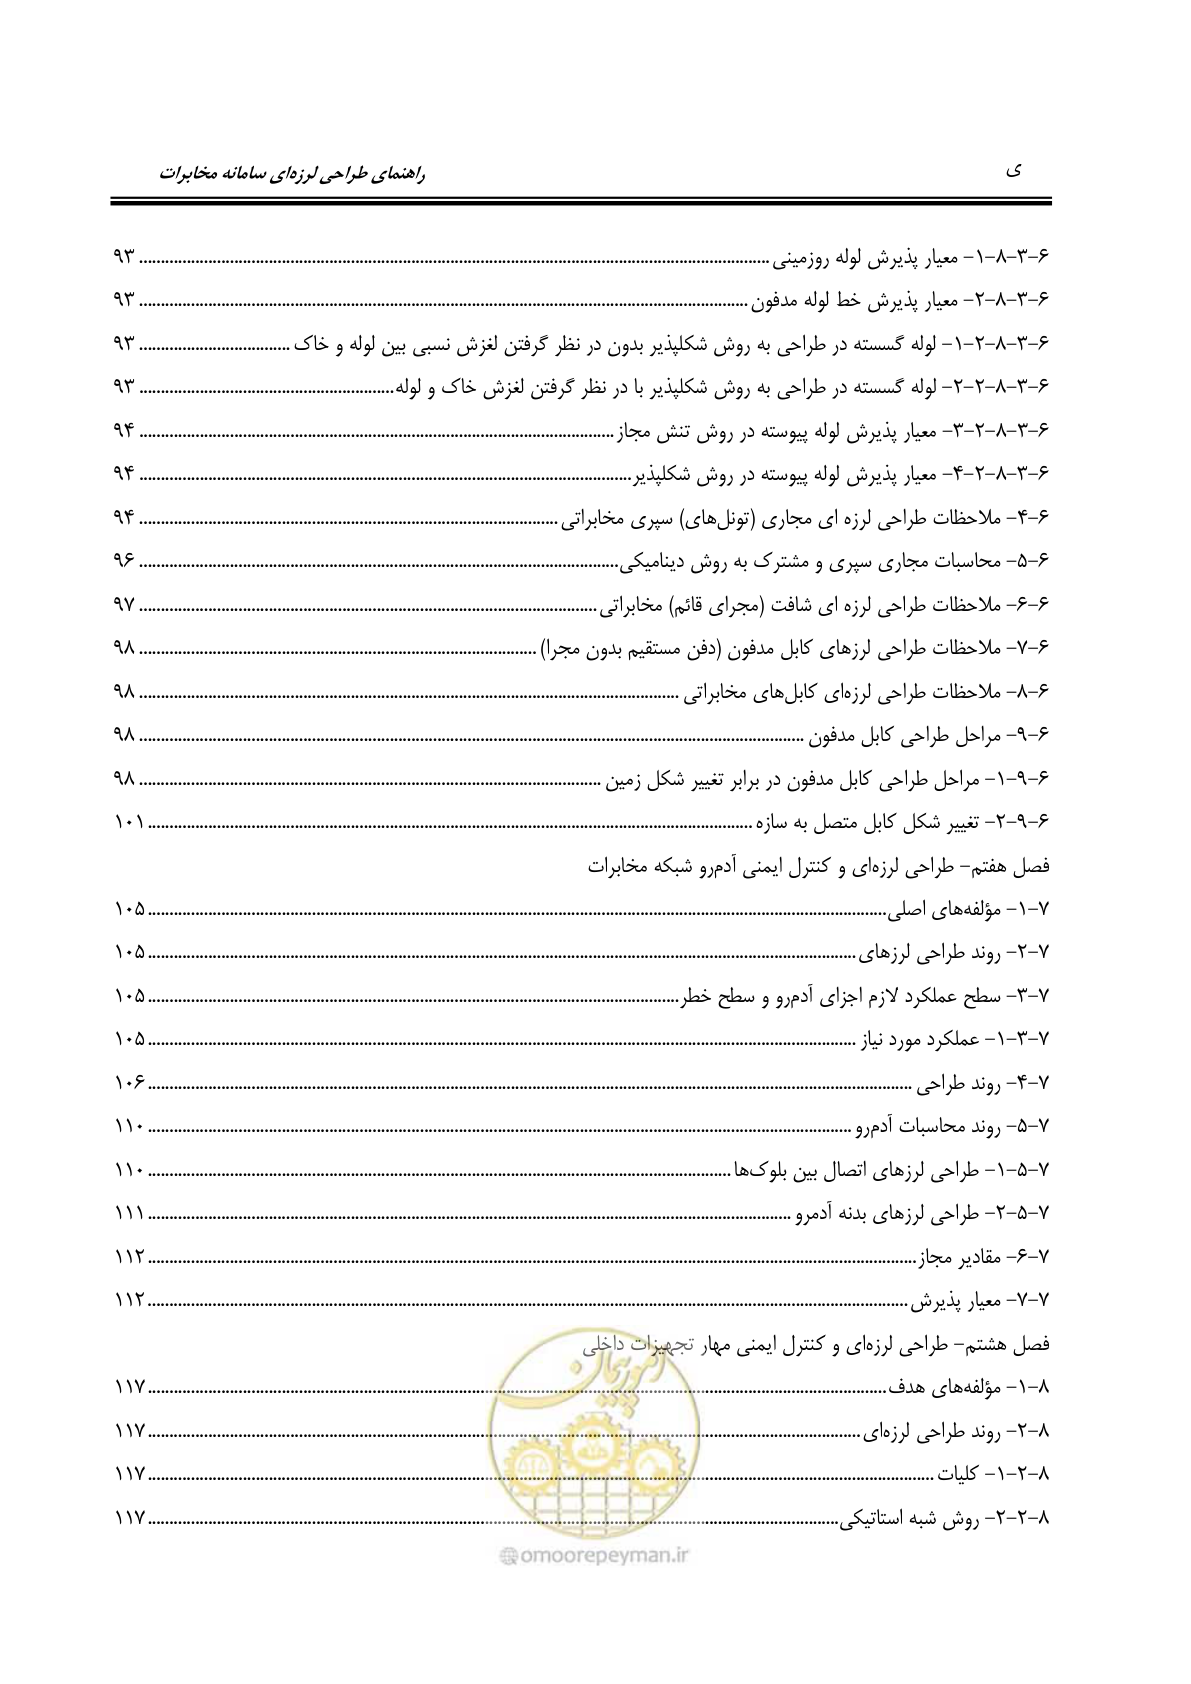 ی
راهنمای طراحی لرزه‌ای سامانه مخابرات
۶-۳-۸-۱- معیار پذیرش لوله روزمینی ........ ۹۳
۶-۳-۸-۲- معیار پذیرش خط لوله مدفون ........ ۹۳
۶-۳-۸-۲-۱- لوله گسسته در طراحی به روش شکلپذیر بدون در نظر گرفتن لغزش نسبی بین لوله و خاک ........ ۹۳
۶-۳-۸-۲-۲- لوله گسسته در طراحی به روش شکلپذیر با در نظر گرفتن لغزش خاک و لوله ........ ۹۳
۶-۳-۸-۲-۳- معیار پذیرش لوله پیوسته در روش تنش مجاز ........ ۹۴
۶-۳-۸-۲-۴- معیار پذیرش لوله پیوسته در روش شکلپذیر ........ ۹۴
۶-۴- ملاحظات طراحی لرزه ای مجاری (تونل‌های) سپری مخابراتی ........ ۹۴
۶-۵- محاسبات مجاری سپری و مشترک به روش دینامیکی ........ ۹۶
۶-۶- ملاحظات طراحی لرزه ای شافت (مجرای قائم) مخابراتی ........ ۹۷
۶-۷- ملاحظات طراحی لرزهای کابل مدفون (دفن مستقیم بدون مجرا) ........ ۹۸
۶-۸- ملاحظات طراحی لرزه‌ای کابل‌های مخابراتی ........ ۹۸
۶-۹- مراحل طراحی کابل مدفون ........ ۹۸
۶-۹-۱- مراحل طراحی کابل مدفون در برابر تغییر شکل زمین ........ ۹۸
۶-۹-۲- تغییر شکل کابل متصل به سازه ........ ۱۰۱
فصل هفتم- طراحی لرزه‌ای و کنترل ایمنی آدم‌رو شبکه مخابرات
۷-۱- مؤلفه‌های اصلی ........ ۱۰۵
۷-۲- روند طراحی لرزهای ........ ۱۰۵
۷-۳- سطح عملکرد لازم اجزای آدم‌رو و سطح خطر ........ ۱۰۵
۷-۳-۱- عملکرد مورد نیاز ........ ۱۰۵
۷-۴- روند طراحی ........ ۱۰۶
۷-۵- روند محاسبات آدم‌رو ........ ۱۱۰
۷-۵-۱- طراحی لرزهای اتصال بین بلوک‌ها ........ ۱۱۰
۷-۵-۲- طراحی لرزهای بدنه آدمرو ........ ۱۱۱
۷-۶- مقادیر مجاز ........ ۱۱۲
۷-۷- معیار پذیرش ........ ۱۱۲
فصل هشتم- طراحی لرزه‌ای و کنترل ایمنی مهار تجهیزات داخلی
۸-۱- مؤلفه‌های هدف ........ ۱۱۷
۸-۲- روند طراحی لرزه‌ای ........ ۱۱۷
۸-۲-۱- کلیات ........ ۱۱۷
۸-۲-۲- روش شبه استاتیکی ........ ۱۱۷
امور پیمان
@omoorepeyman.ir